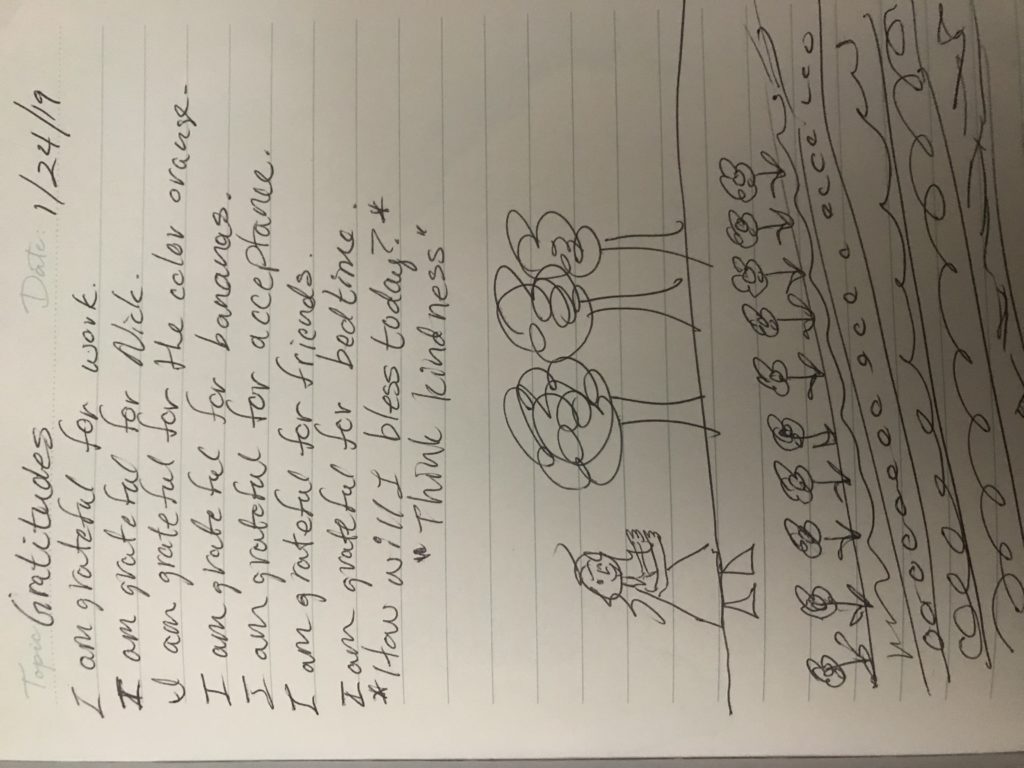 Topic: Gratitudes Date: 1/24/19
I am grateful for work.
I am grateful for Nick.
I am grateful for the color orange.
I am grateful for bananas.
I am grateful for acceptance.
I am grateful for friends.
I am grateful for bedtime.
*How will I bless today?*
"Think kindness"